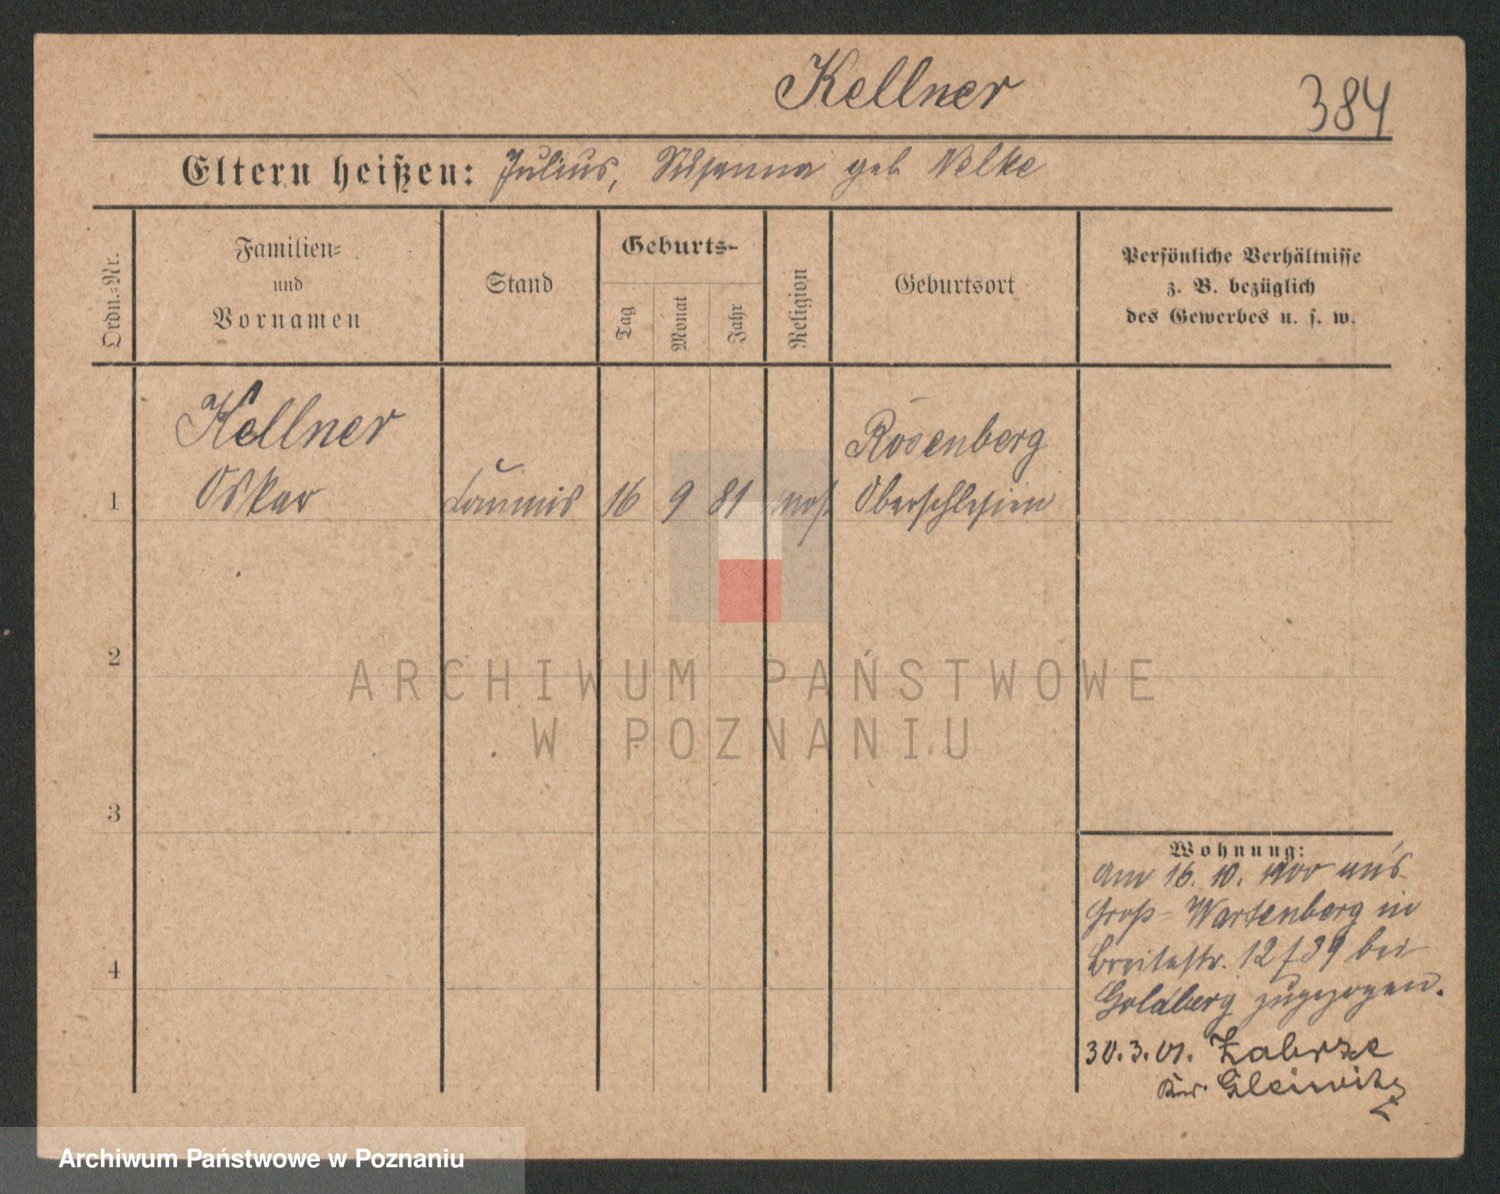 Kellner
384
Eltern heißen: Julius, Susanna geb Nelke
Ordn.-Nr.
Familien-
und
Vornamen
Stand
Geburts-
Tag
Monat
Jahr
Religion
Geburtsort
Persönliche Verhältnisse
z. B. bezüglich
des Gewerbes u. s. w.
Kellner
Oskar
1
Commis
16
9
81
mos
Rosenberg
Oberschlesien
2
3
4
Wohnung:
Am 16. 10. 1900 aus
Groß-Wartenberg in
Breitestr. 12/39 bei
Goldberg zugezogen.
30.3.01. Zabrze
Kr. Gleiwitz
ARCHIWUM PAŃSTWOWE
W POZNANIU
Archiwum Państwowe w Poznaniu